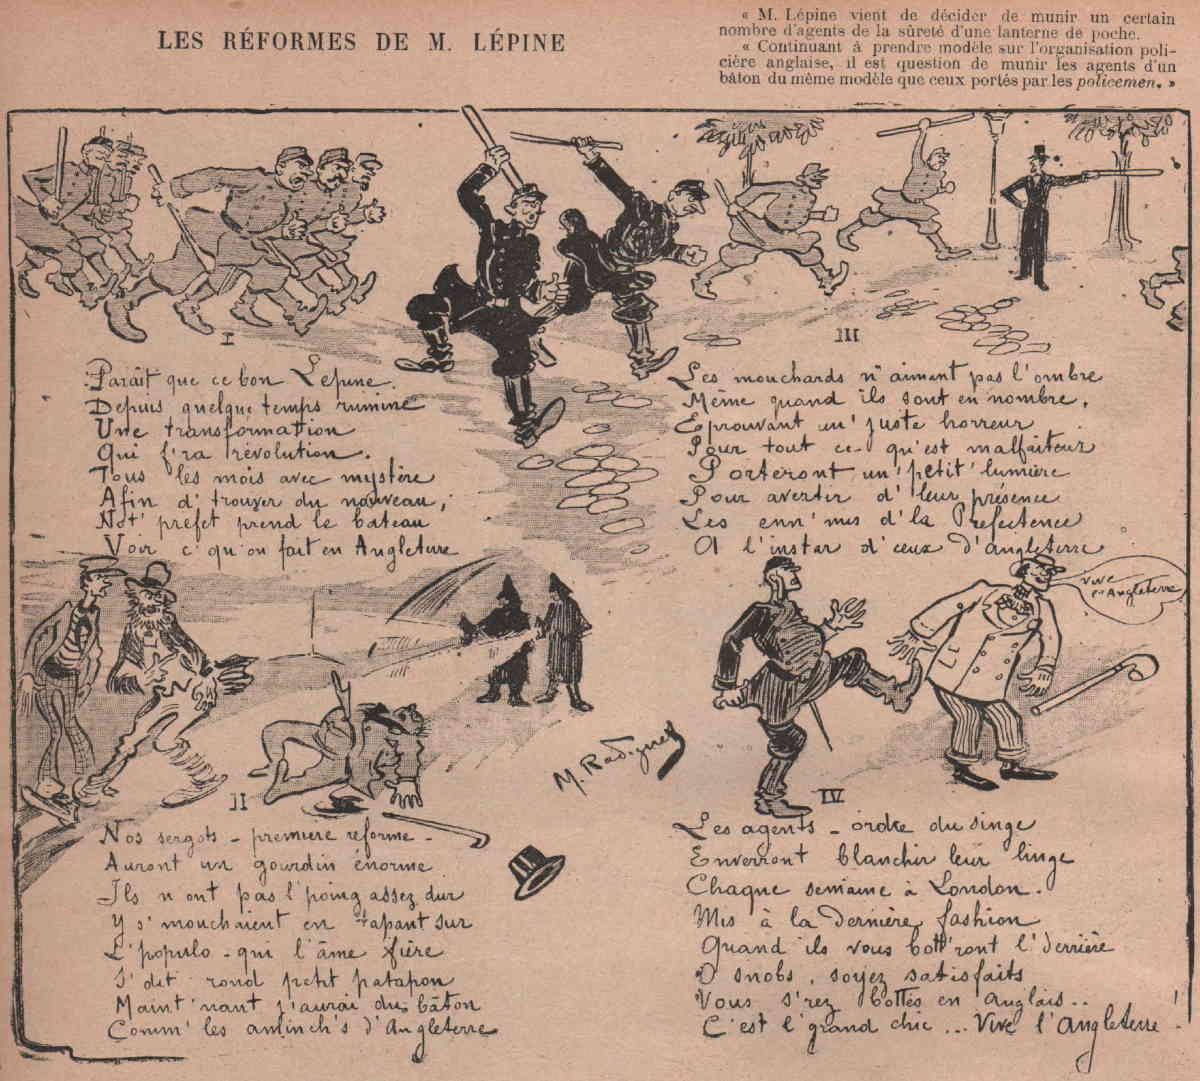 LES RÉFORMES DE M. LÉPINE
« M. Lépine vient de décider de munir un certain
nombre d'agents de la sûreté d'une lanterne de poche.
« Continuant à prendre modèle sur l'organisation poli-
cière anglaise, il est question de munir les agents d'un
bâton du même modèle que ceux portés par les policemen. »
I
Parait que ce bon Lepine.
Depuis quelque temps rumine
Une transformation
Qui f'ra révolution.
Tous les mois avec mystère
Afin d'trouver du nouveau,
Not' prefet prend le bateau
Voir c'qu'on fait en Angleterre
II
Nos sergots - premiere reforme -
Auront un gourdin énorme
Ils n'ont pas l'poing assez dur
Y s'mouchaient en tapant sur
L'populo - qui l'âme fière
S'dit rond petit patapon
Maint'nant j'aurai du bâton
Comm' les aminch's d'Angleterre
III
Les mouchards n'aiment pas l'ombre
Même quand ils sont en nombre,
Eprouvant un' juste horreur
Pour tout ce qu'est malfaiteur
Porteront un' petit' lumière
Pour avertir d'leur présence
Les enn'mis d'la Prefectence
A l'instar d'ceux d'Angleterre
vive
l'Angleterre
M. Radiguet
IV
Les agents - ordre du singe
Enverront blanchir leur linge
Chaque semaine à London.
Mis à la dernière fashion
Quand ils vous bott'ront l'derrière
O snobs, soyez satisfaits
Vous s'rez bottés en anglais..
C'est l'grand chic... Vive l'Angleterre !